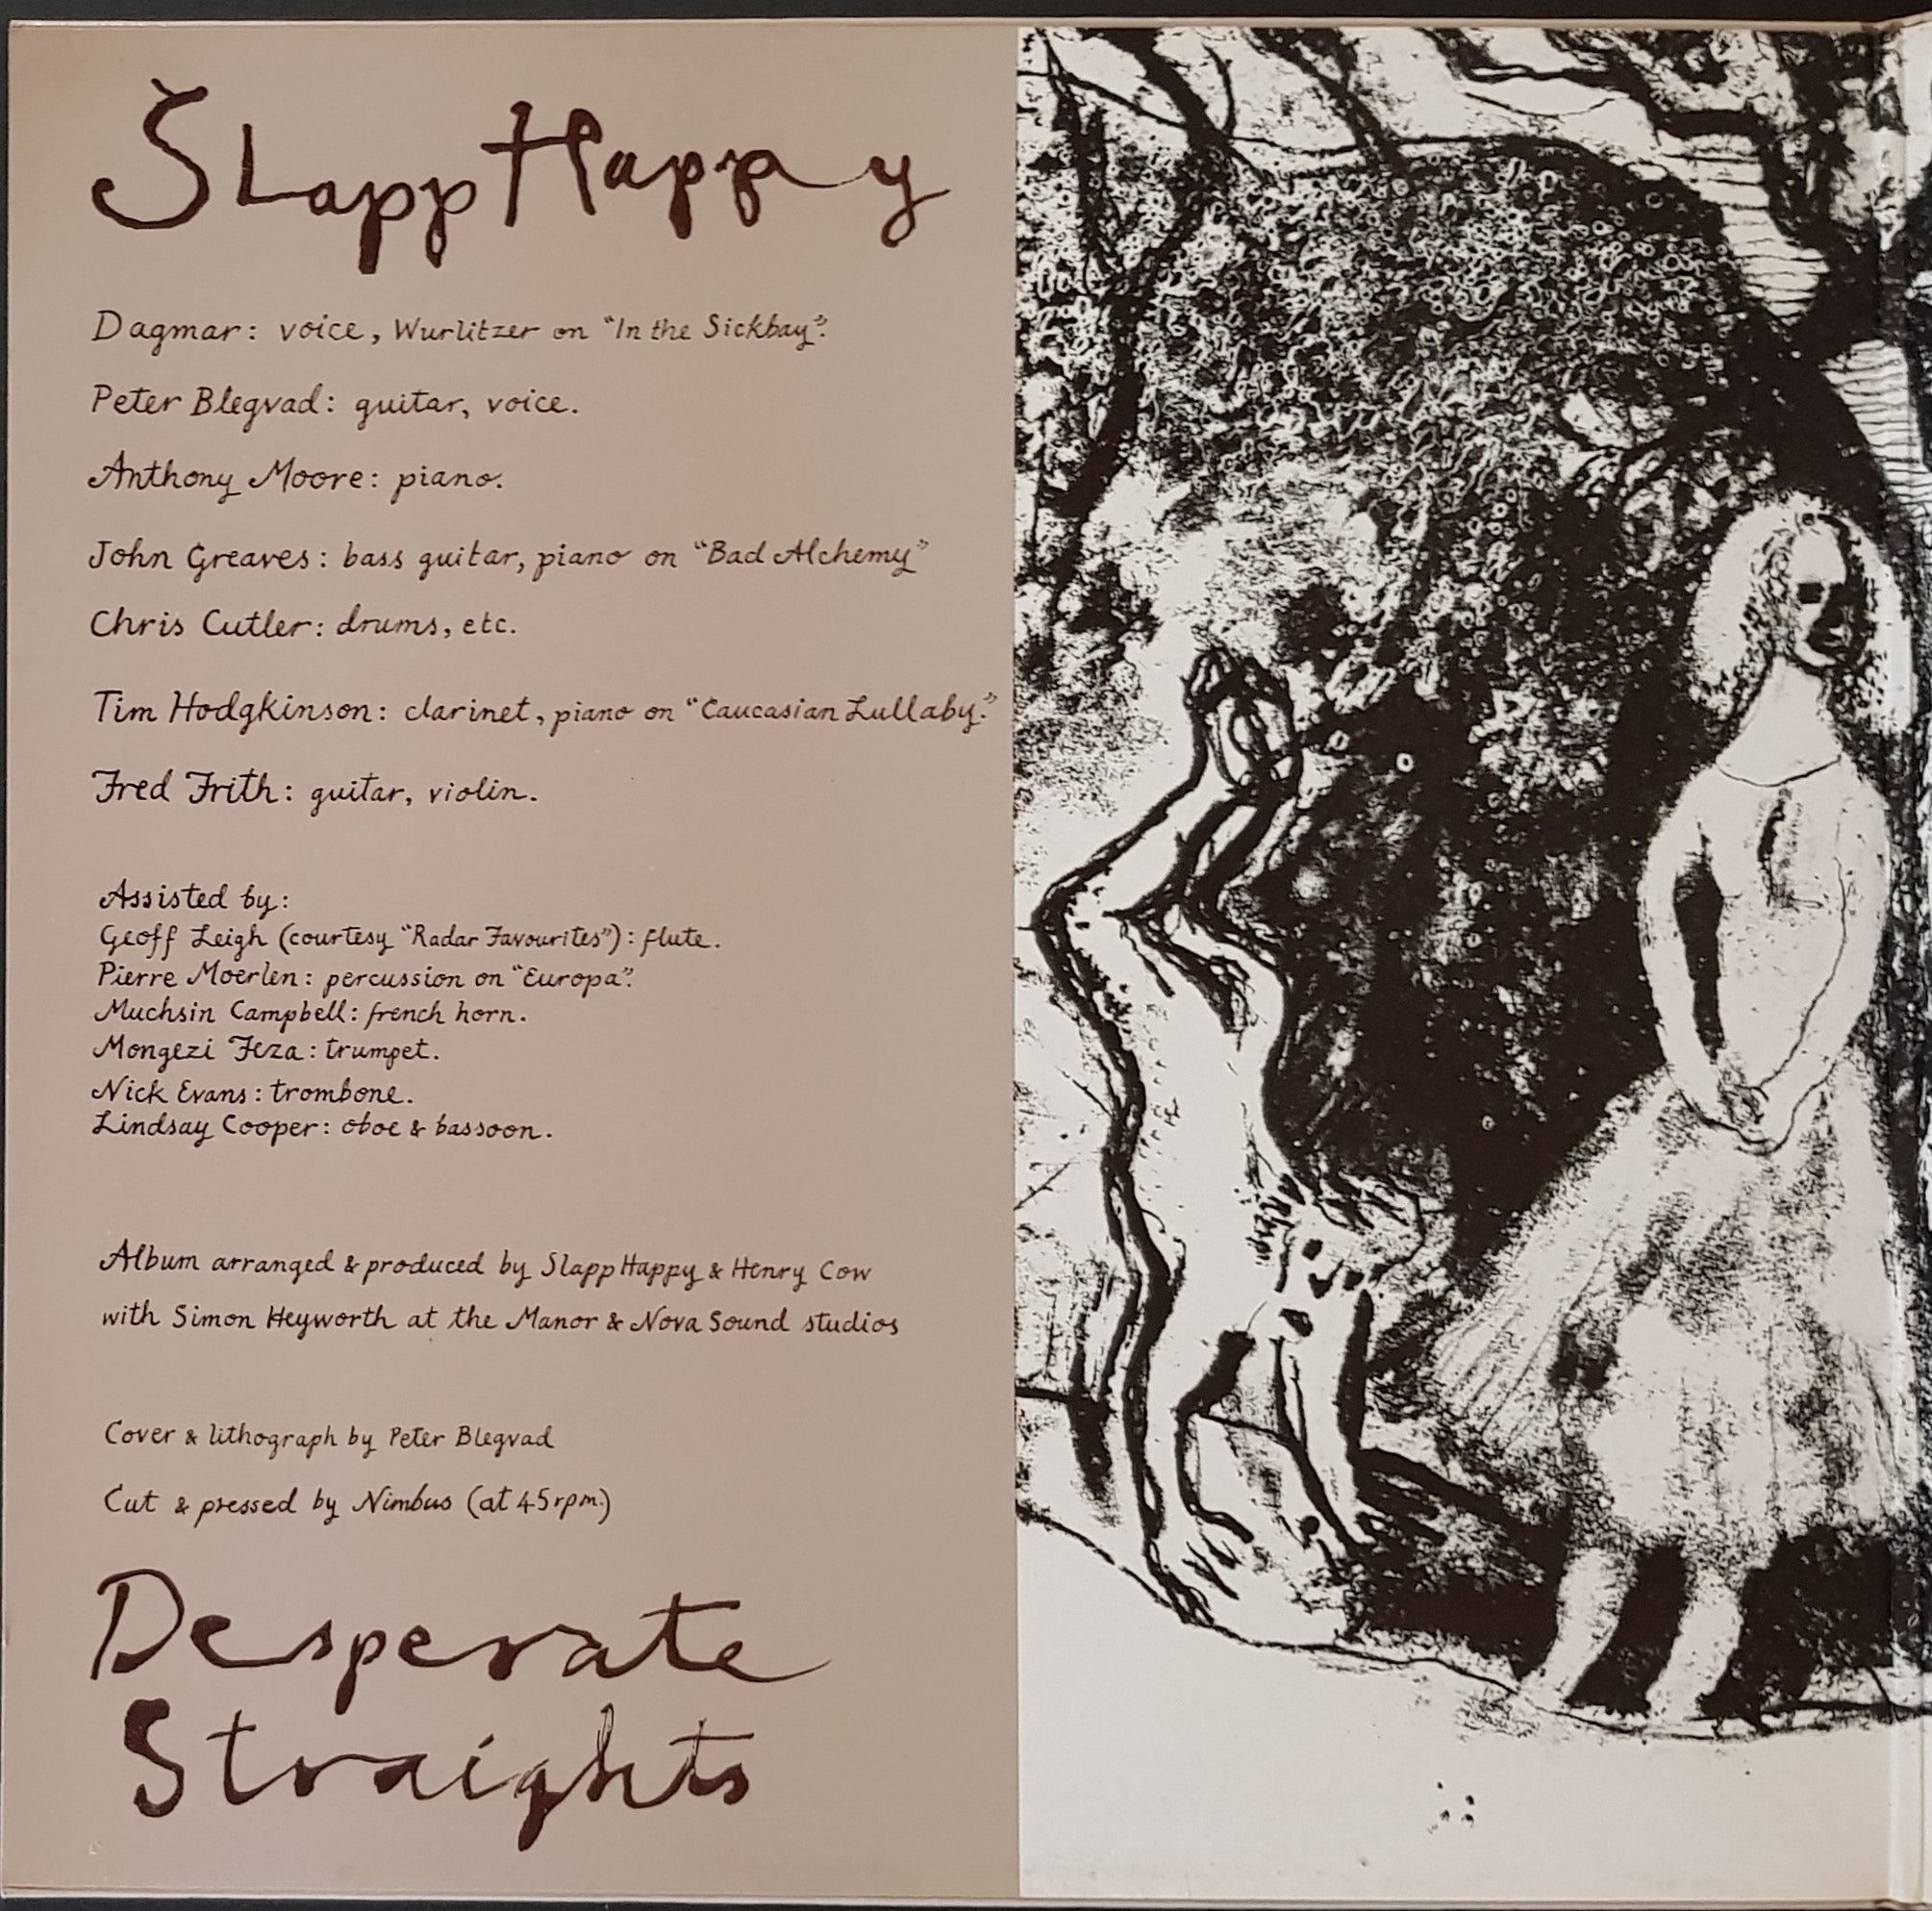 Slapp Happy
Dagmar: voice, Wurlitzer on "In the Sickbay".
Peter Blegvad: guitar, voice.
Anthony Moore: piano.
John Greaves: bass guitar, piano on "Bad Alchemy"
Chris Cutler: drums, etc.
Tim Hodgkinson: clarinet, piano on "Caucasian Lullaby."
Fred Frith: guitar, violin.
Assisted by:
Geoff Leigh (courtesy "Radar Favourites"): flute.
Pierre Moerlen: percussion on "Europa".
Muchsin Campbell: french horn.
Mongezi Feza: trumpet.
Nick Evans: trombone.
Lindsay Cooper: oboe & bassoon.
Album arranged & produced by Slapp Happy & Henry Cow
with Simon Heyworth at the Manor & Nova Sound studios
Cover & lithograph by Peter Blegvad
Cut & pressed by Nimbus (at 45rpm.)
Desperate
Straights